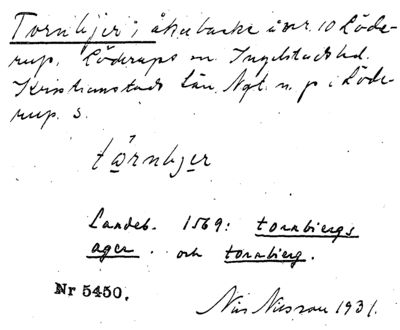 Tornbjer, åkerbacke å nr. 10 Löde-
rup, Löderups sn. Ingelstads hd.
Kristianstads län. Ngt. n. p. i Löde-
rup s.
tørnbjer
Landeb. 1569: tornbiergs
ager. och tornbierg.
Nr 5450.
Nils Nilsson 1931.